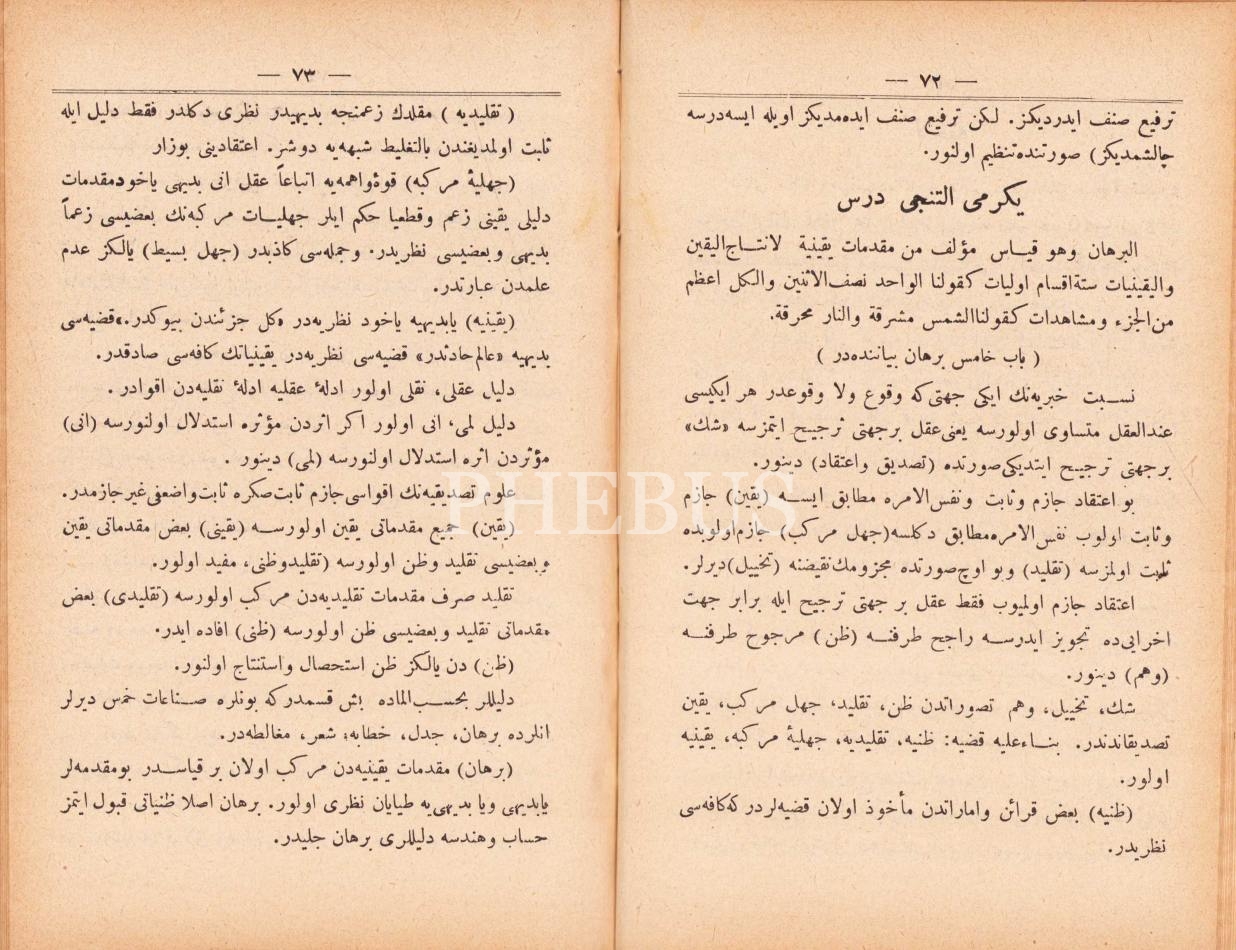 — ٧٢ —
ترفيع صنف ايدرديكز. لكن ترفيع صنف ايده‌مديكز اويله ايسه‌درسه
چالشمديكز) صورتنده‌تنظيم اولنور.
يكرمى التنجى درس
البرهان وهو قياس مؤلف من مقدمات يقينية لانتاج‌اليقين
واليقينيات ستة‌اقسام اوليات كقولنا الواحد نصف‌الاثنين والكل اعظم
من‌الجزء ومشاهدات كقولناالشمس مشرقة والنار محرقة.
( باب خامس برهان بياننده‌در )
نسبت خبريه‌نك ايكى جهتى‌كه وقوع ولا وقوعدر هر ايكيسى
عندالعقل متساوى اولورسه يعنى‌عقل برجهتى ترجيح ايتمزسه «شك»
برجهتى ترجيح ايتديكى‌صورتده (تصديق واعتقاد) دينور.
بو اعتقاد جازم وثابت ونفس‌الامره مطابق ايسه (يقين) جازم
وثابت اولوب نفس‌الامره‌مطابق دكلسه(جهل مركب) جازم‌اولوبده
ثابت اولمزسه (تقليد) وبو اوچ‌صورتده مجزومك‌نقيضنه (تخييل)ديرلر.
اعتقاد جازم اولميوب فقط عقل بر جهتى ترجيح ايله برابر جهت
اخرايى‌ده تجويز ايدرسه راجح طرفنه (ظن) مرجوح طرفنه
(وهم) دينور.
شك، تخييل، وهم تصوراتدن ظن، تقليد، جهل مركب، يقين
تصديقاتدندر. بناءعليه قضيه: ظنيه، تقليديه، جهليۀ مركبه، يقينيه
اولور.
(ظنيه) بعض قرائن واماراتدن مأخوذ اولان قضيه‌لردر كه‌كافه‌سى
نظريدر.
— ٧٣ —
( تقليديه ) مقلدك زعمنجه بديهيدر نظرى دكلدر فقط دليل ايله
ثابت اولمديغندن بالتغليط شبهه‌يه دوشر. اعتقادينى بوزار
(جهليۀ مركبه) قوۀواهمه‌يه اتباعاً عقل انى بديهى ياخودمقدمات
دليلى يقينى زعم وقطعيا حكم ايلر جهليات مركبه‌نك بعضيسى زعماً
بديهى وبعضيسى نظريدر. وجمله‌سى كاذبدر (جهل بسيط) يالكز عدم
علمدن عبارتدر.
(يقينيه) يابديهيه ياخود نظريه‌در «كل جزئندن بيوكدر.»قضيه‌سى
بديهيه «عالم‌حادثدر» قضيه‌سى نظريه‌در يقينياتك كافه‌سى صادقدر.
دليل عقلى، نقلى اولور ادلۀ عقليه ادلۀ نقليه‌دن اقوادر .
دليل لمى، انى اولور اكر اثردن مؤثره استدلال اولنورسه (انى)
مؤثردن اثره استدلال اولنورسه (لمى) دينور .
علوم تصديقيه‌نك اقواسى‌جازم ثابت‌صكره ثابت‌واضعفى‌غيرجازمدر.
(يقين) جميع مقدماتى يقين اولورسه (يقينى) بعض مقدماتى يقين
وبعضيسى تقليد وظن اولورسه (تقليدوظنى، مفيد اولور.
تقليد صرف مقدمات تقليديه‌دن مركب اولورسه (تقليدى) بعض
مقدماتى تقليد وبعضيسى ظن اولورسه (ظنى) افاده ايدر.
(ظن) دن يالكز ظن استحصال واستنتاج اولنور.
دليللر بحسب‌الماده بش قسمدركه بونلره صناعات خمس ديرلر
انلرده برهان، جدل، خطابه، شعر، مغالطه‌در.
(برهان) مقدمات يقينيه‌دن مركب اولان بر قياسدر بومقدمه‌لر
يابديهى ويا بديهى‌يه طيايان نظرى اولور. برهان اصلا ظنياتى قبول ايتمز
حساب وهندسه دليللرى برهان جليدر.
PHEBUS